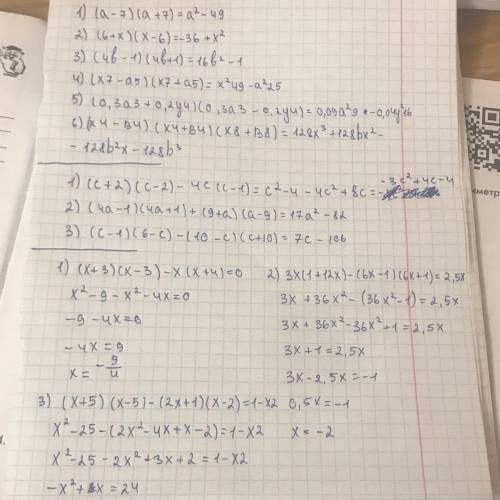 1) (a-7)(a+7)=a²-49
2) (6+x)(x-6)=-36+x²
3) (4b-1)(4b+1)=16b²-1
4) (x7-a5)(x7+a5)=x²49-a²25
5) (0,3a3+0,2y4)(0,3a3-0,2y4)=0,09a²9-0,04y²16
6) (x4-B4)(x4+B4)(x8+B8)=128x³+128bx²-
-128b²x-128b³
1) (c+2)(c-2)-4c(c-1)=c²-4-4c²+8c=-3c²+4c-4
2) (4a-1)(4a+1)+(9+a)(a-9)=17a²-82
3) (c-1)(6-c)-(10-c)(c+10)=7c-106
1) (x+3)(x-3)-x(x+4)=0
x²-9-x²-4x=0
-9-4x=0
-4x=9
x=-9/4
2) 3x(1+12x)-(6x-1)(6x+1)=2,5x
3x+36x²-(36x²-1)=2,5x
3x+36x²-36x²+1=2,5x
3x+1=2,5x
3x-2,5x=-1
0,5x=-1
x=-2
3) (x+5)(x-5)-(2x+1)(x-2)=1-x2
x²-25-(2x²-4x+x-2)=1-x2
x²-25-2x²+3x+2=1-x2